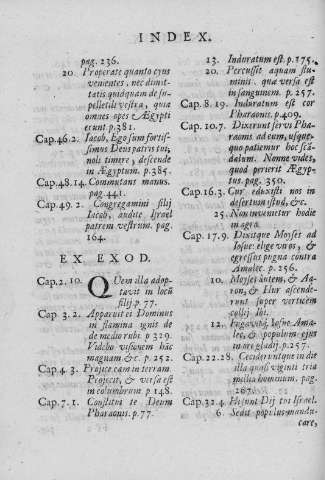 INDEX.
pag. 236.
20. Properate quanto cyus
venientes, nec dimit
tatis quidquam de su-
pelletili vestra, quia
omnes opes Ægypti
erunt p.381.
Cap.46.2. Iacob, Ego sum fortis-
simus Deus patris tui,
noli timere, descende
in Ægyptum. p.385.
Cap.48.14. Commutans manus.
pag.441.
Cap.49.2. Congregamini filij
Iacob, audite Israel
patrem vestrum. pag.
164.
EX EXOD.
Cap.2.10. QUem illa adop-
tavit in locũ
filij p.77.
Cap.3.2. Apparuit ei Dominus
in flamma ignis de
de medio rubi. p 329.
Videbo visionem hãc
magnam &c. p.252.
Cap.4.3. Projice eam in terram
Projecit, & versa est
in columbrum p 148.
Cap.7.1. Constitui te Deum
Pharaonis. p.77.
13. Induratum est. p.175.
20. Percussit aquam flu-
minis quæ versa est
in sanguinem. p.257.
Cap.8.19. Induratum est cor
Pharaonis. p.409.
Cap.10.7. Dixerunt servi Pha-
raonis ad eum, usque-
quo patiemur hoc scã-
dalum. Nonne vides,
quod perierit Ægyp-
tus. pag. 350.
Cap.16.3. Cur eduxisti nos in
desertum istud, &c.
25. Non invenietur hodie
in agro.
Cap.17.9. Dixitque Moyses ad
Iosue: elige viros, &
egressus pugna contra
Amalec. p.256.
10. Moyses autem, & Aa-
ron, & Hur ascende-
runt super verticem
collis ibi.
12. Fugavitq; Iosue Ama-
lec, & populum ejus
in ore gladij. p.257.
Cap.22.28. Cecideruntque in die
illa quasi viginti tria
millia hominum. pag.
267.
Cap.32.4. Hi sunt Dij tui Israel.
6. Sedit populus mandu-
care,